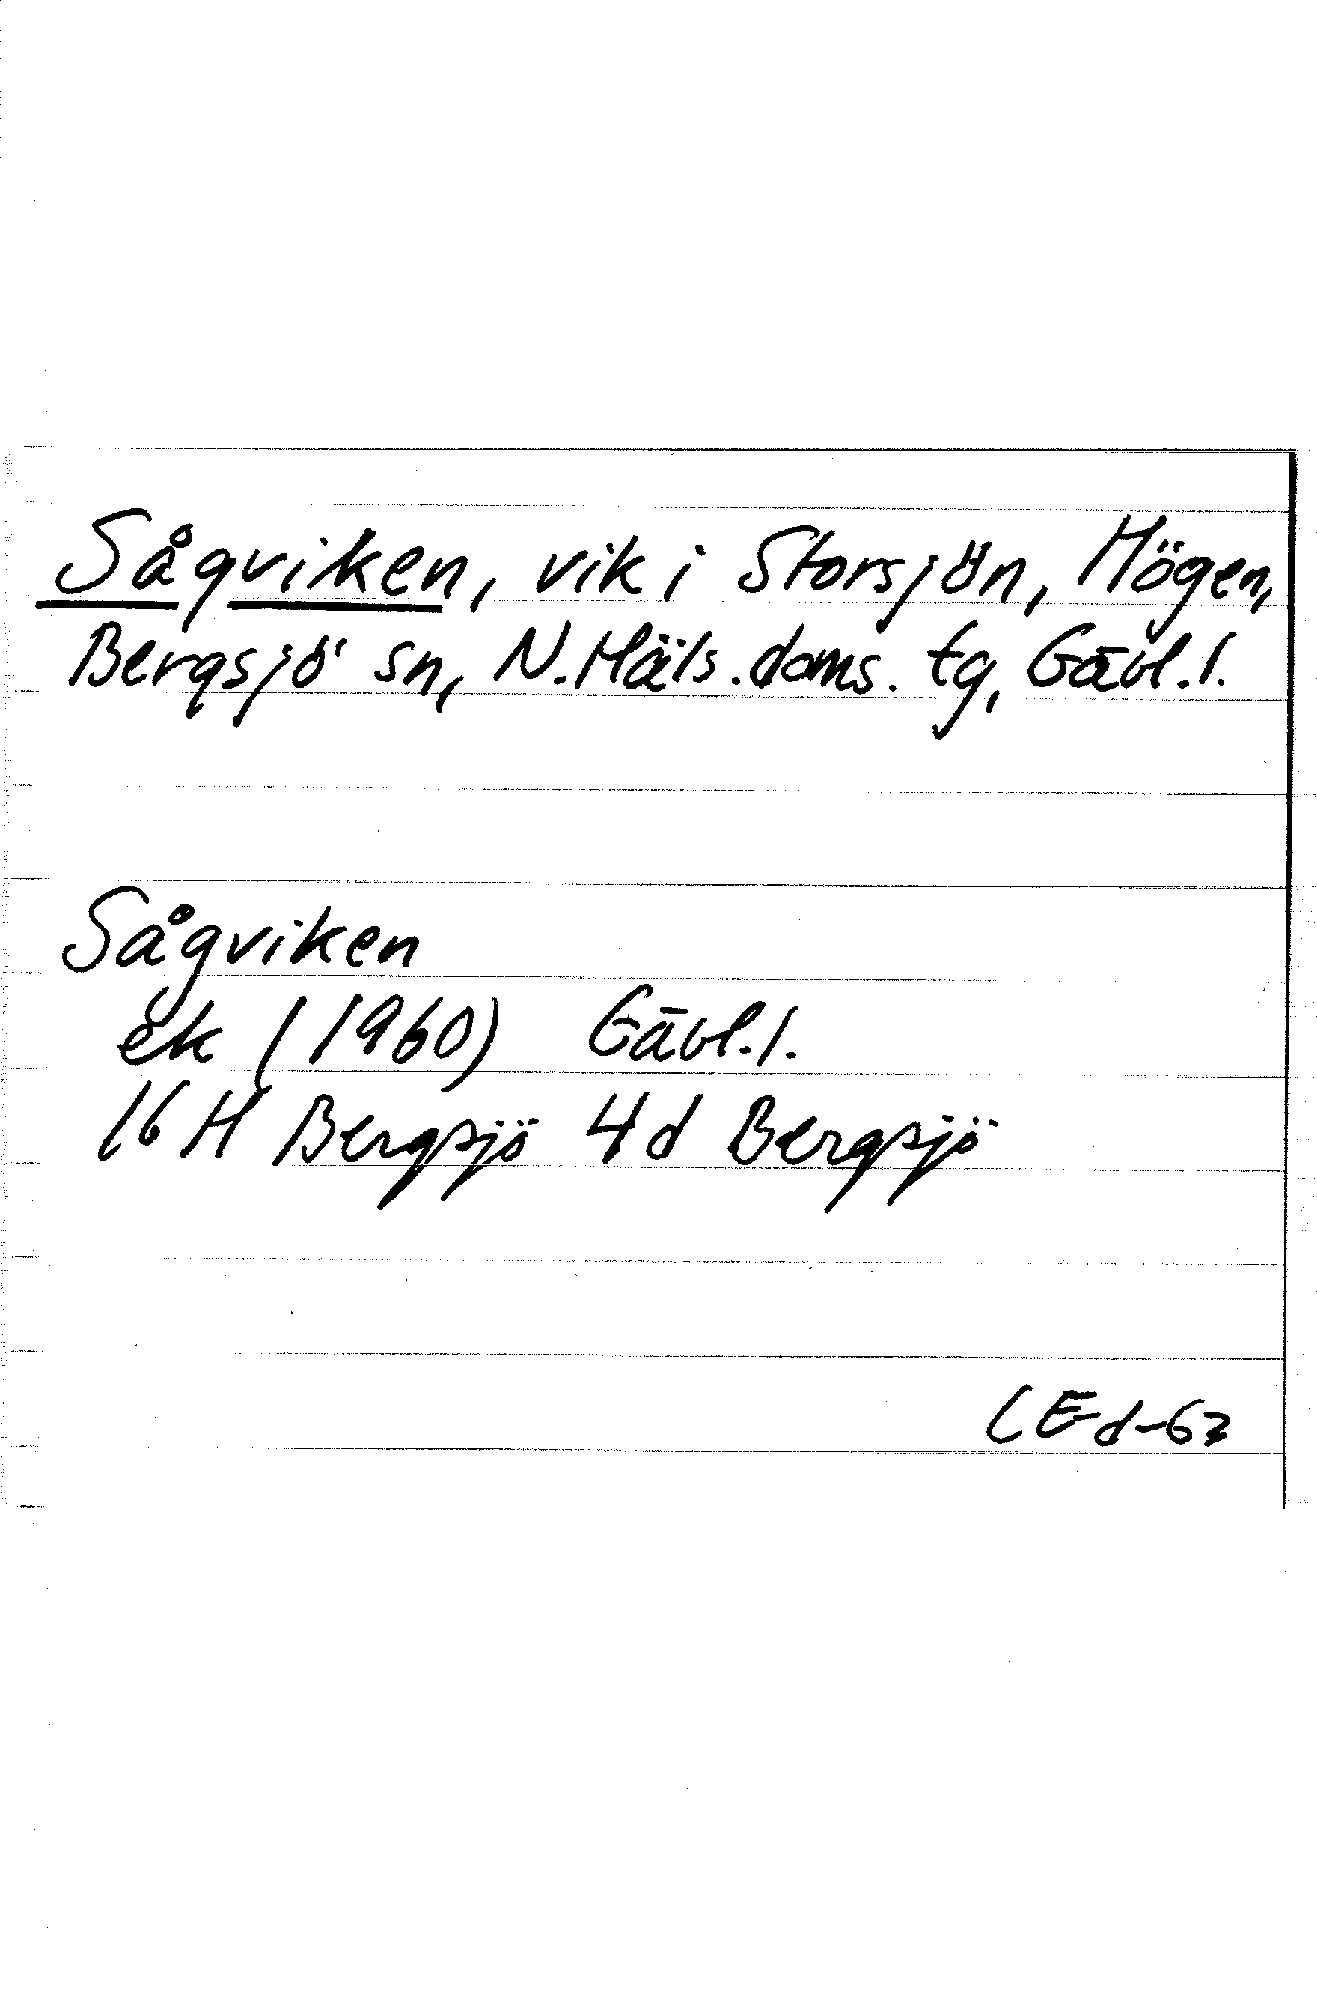 Sågviken, vik i Storsjön, Högen,
Bergsjö sn, N.Häls.doms.tg, Gävl.l.
Sågviken
ek (1960) Gävl.l.
16 H Bergsjö 4d Bergsjö